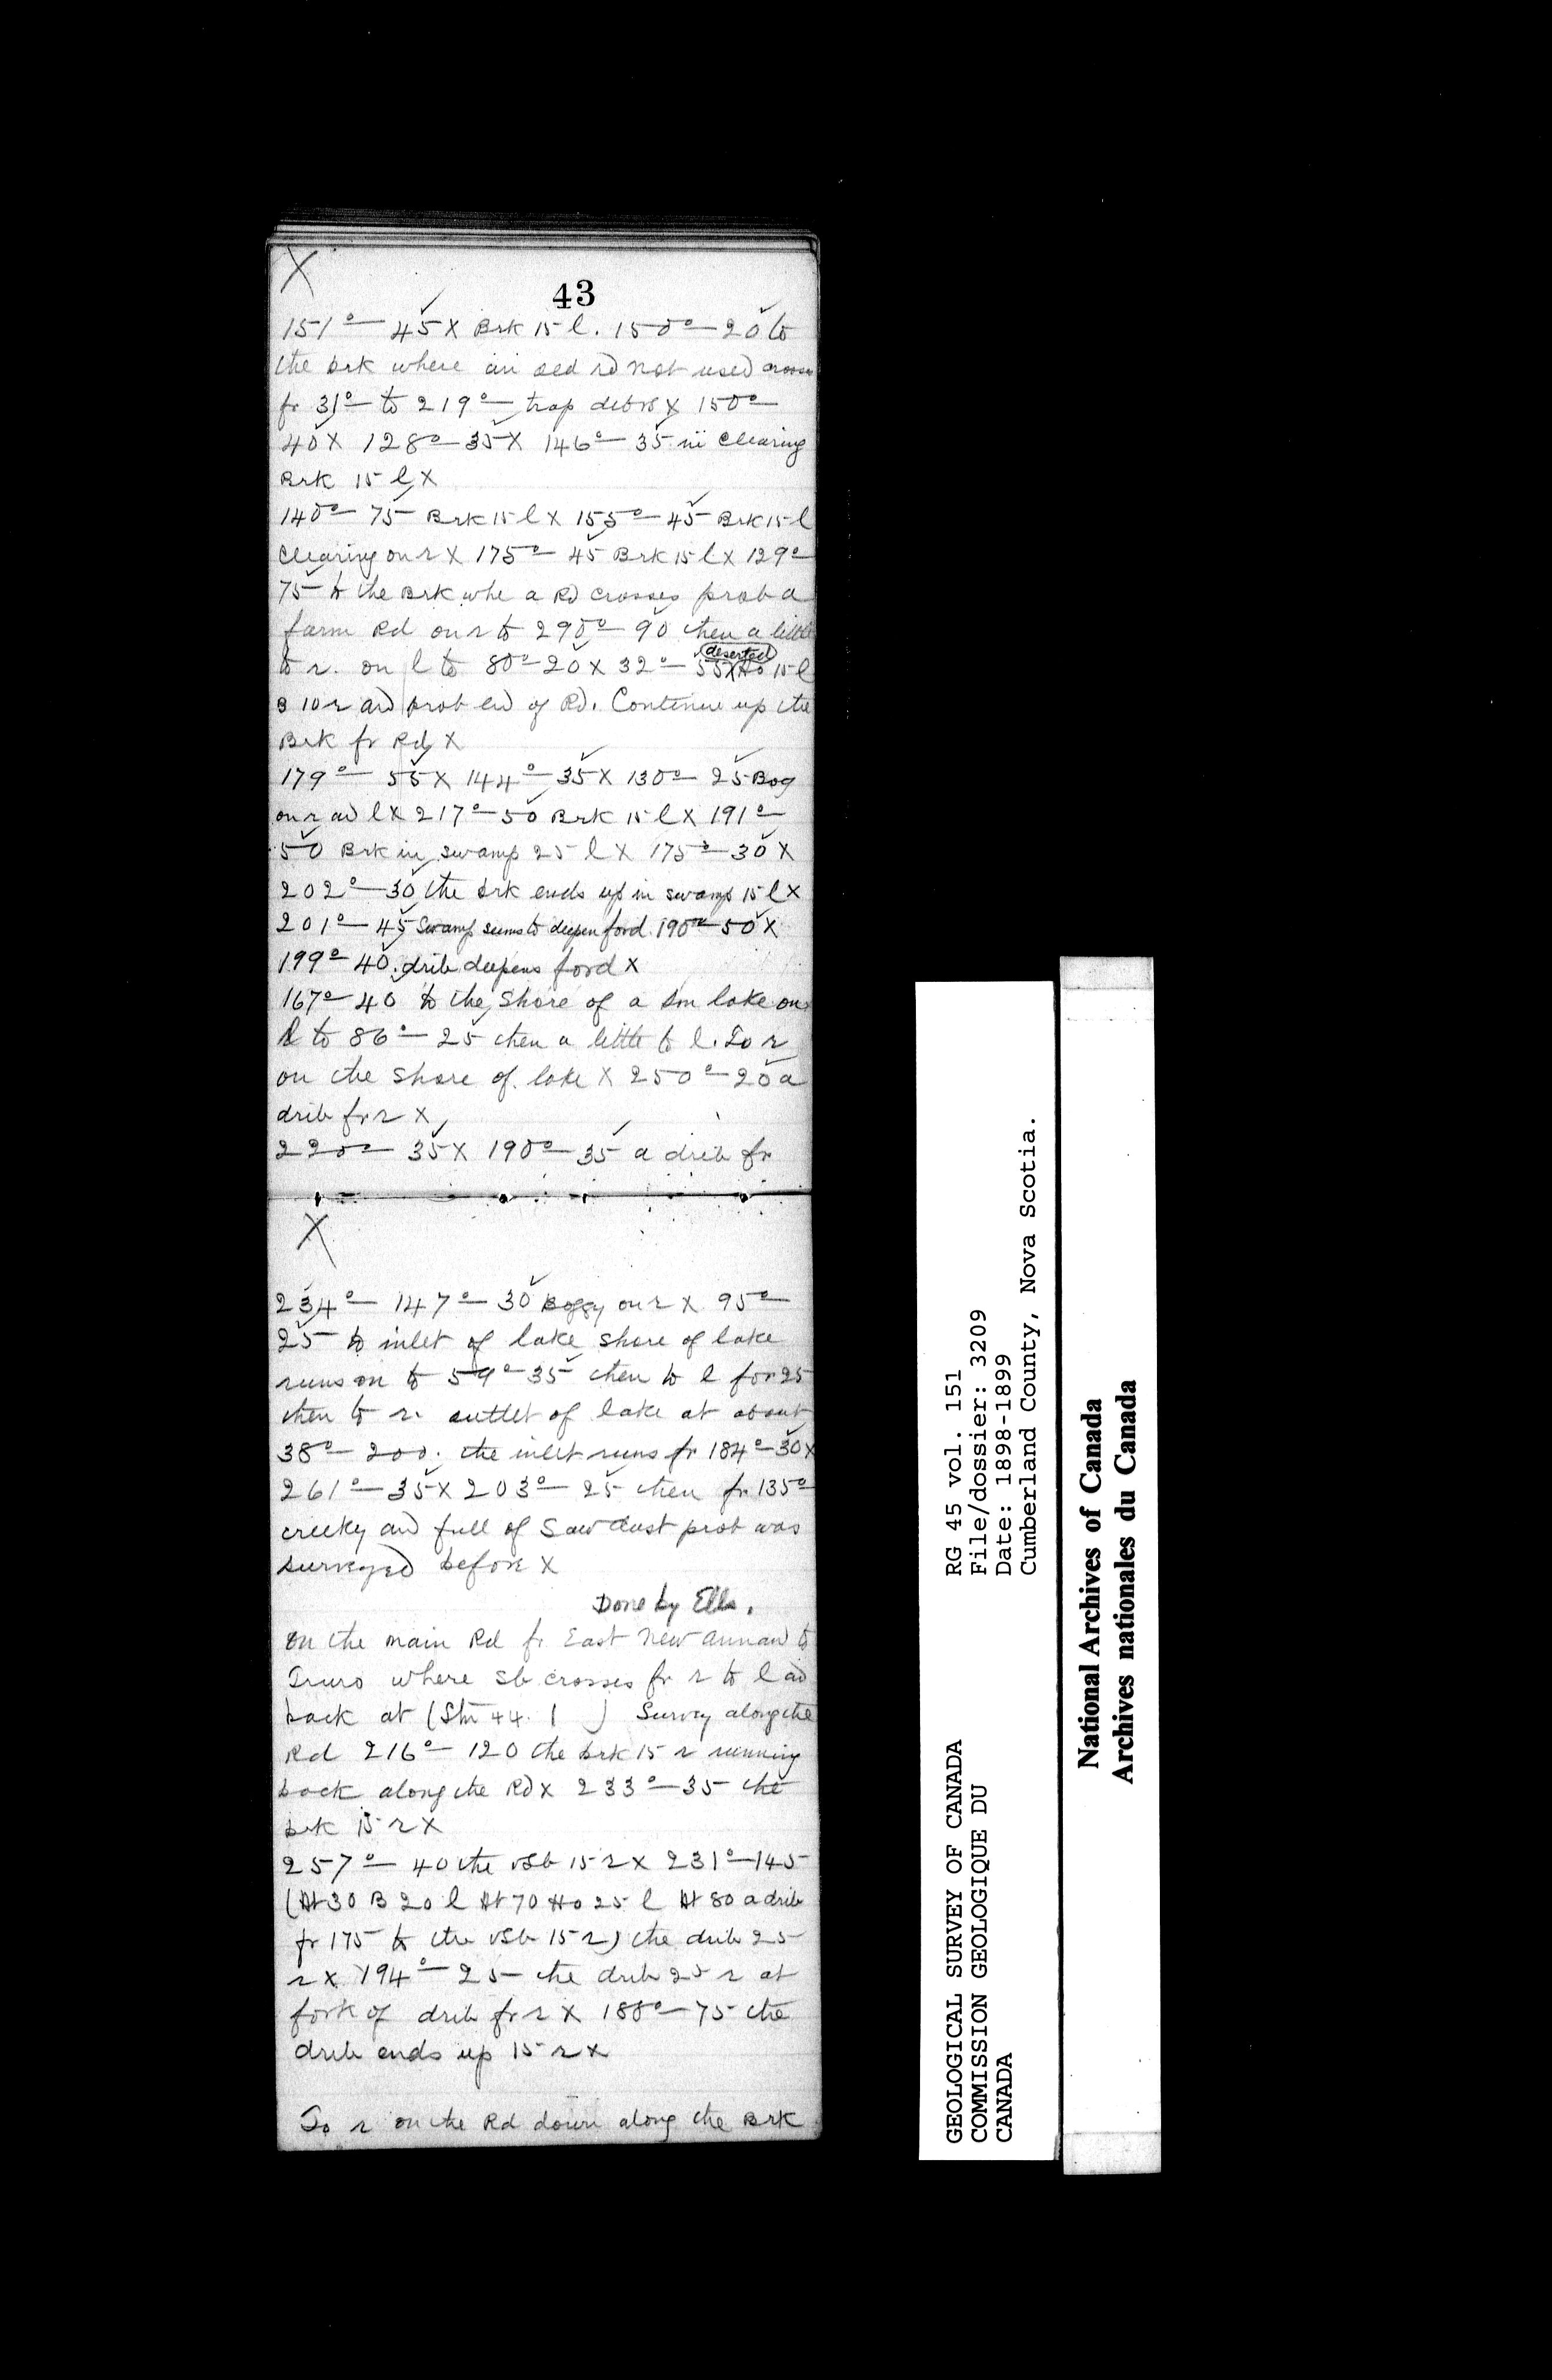 X
43
151° — 45 X Brk 15 l. 150° — 20 to
the brk where an old rd not used crosses
fr 31° — to 219° — trap debris X 150° —
40 X 128° — 35 X 146° — 35 in clearing
Brk 15 l X
140° — 75 Brk 15 l X 155° — 45 Brk 15 l
Clearing on r X 175° — 45 Brk 15 l X 129° —
75 to the Brk whe a Rd crosses prob a
farm Rd on r to 290° — 90 then a little
deserted
to r. on l to 80° — 20 X 32° — 55 X Ho 15 l
B 10 r and prob end of Rd. Continue up the
Brk fr Rd X
179° — 55 X 144° — 35 X 130° — 25 Bog
on r and l X 217° — 50 Brk 15 l X 191° —
50 Brk in swamp 25 l X 175° — 30 X
202° — 30 the brk ends up in swamp 15 l X
201° — 45 Swamp seems to deepen ford 190° — 50 X
199° — 40. drib deepens ford X
167° — 40 to the Shore of a sm lake on
l to 86° — 25 then a little to l. To r
on the Shore of lake X 250° — 20 a
drib fr r X
220° — 35 X 190° — 35 a drib fr
X
234° — 147° — 30 Boggy on r X 95° —
25 to inlet of lake Shore of lake
runs on to 59° — 35 then to l for 25
then to r. outlet of lake at about
38° — 200. the inlet runs fr 184° — 30 X
261° — 35 X 203° — 25 then fr 135° —
creeky and full of Saw dust prob was
surveyed before X
Done by Ells.
On the main Rd fr East New Annan to
Truro where sb crosses fr r to l and
back at (Stn 44. 1 ) Survey along the
Rd 216° — 120 the brk 15 r running
back along the Rd X 233° — 35 the
brk 15 r X
257° — 40 the vsb 15 r X 231° — 145
(At 30 B 20 l At 70 Ho 25 l At 80 a drib
fr 175 to the vsb 15 r) the drib 25
r X 194° — 25 the drib 25 r at
fork of drib fr r X 188° — 75 the
drib ends up 15 r X
To r on the Rd down along the Brk
GEOLOGICAL SURVEY OF CANADA
COMMISSION GEOLOGIQUE DU
CANADA
RG 45 vol. 151
File/dossier: 3209
Date: 1898-1899
Cumberland County, Nova Scotia.
National Archives of Canada
Archives nationales du Canada